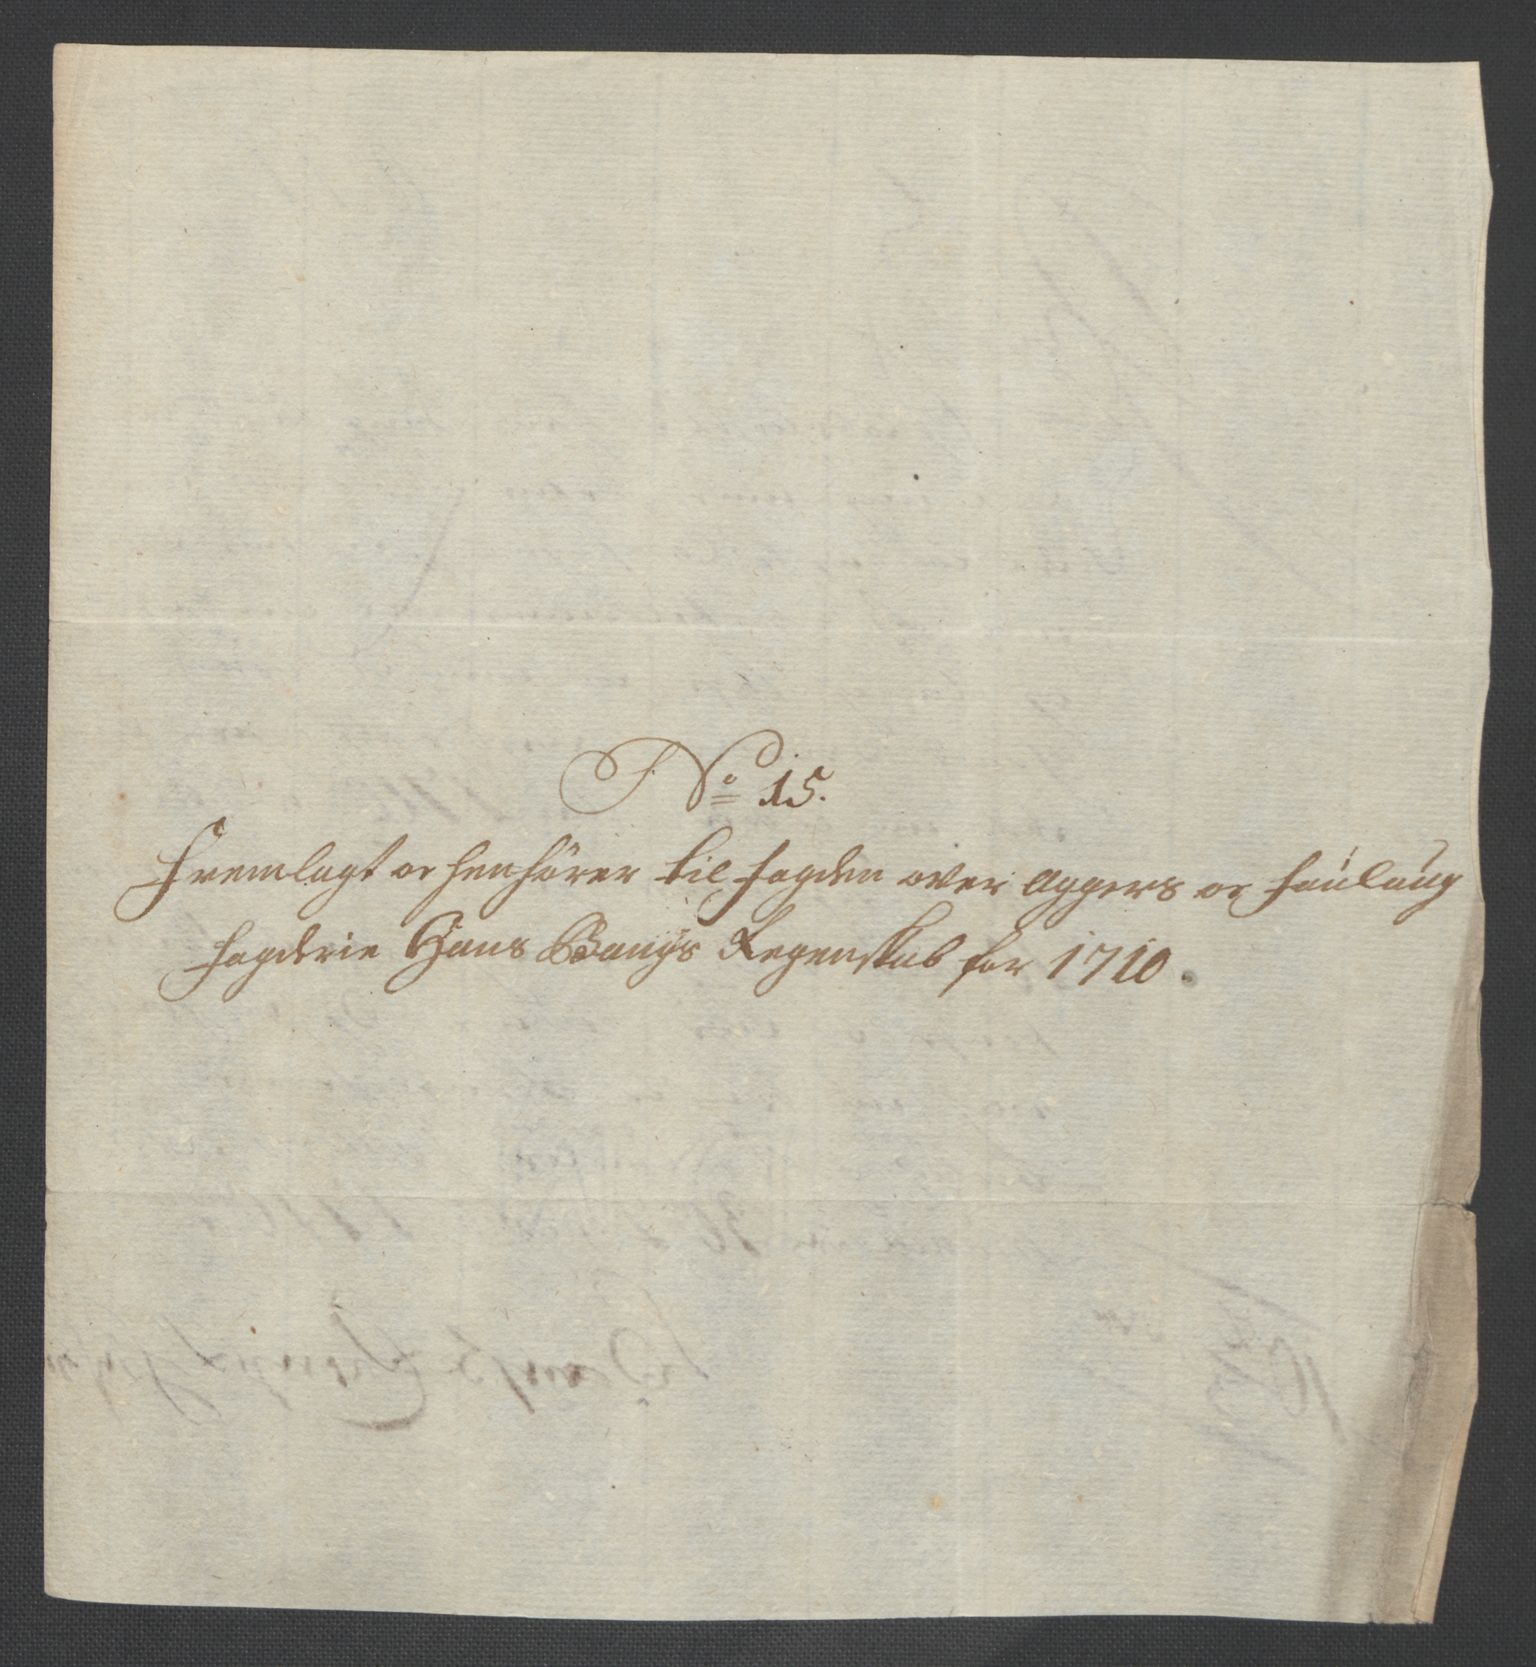 No 15.
Fremlagt oc henhörer til fogden over Aggers oc fouloug
fogderie Hans Bangs Regenskab for 1710.